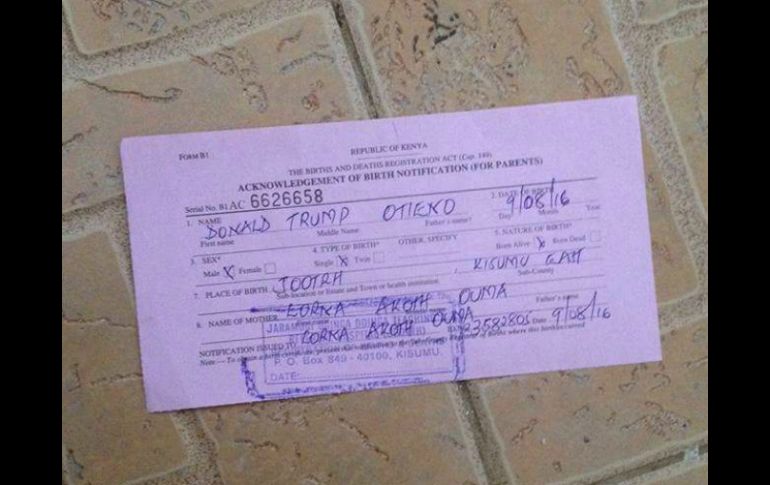 FORM B1
REPUBLIC OF KENYA
THE BIRTHS AND DEATHS REGISTRATION ACT (Cap. 149)
ACKNOWLEDGEMENT OF BIRTH NOTIFICATION (FOR PARENTS)
Serial No. B1 AC 6626658
1. NAME DONALD TRUMP OTIENO 2. DATE OF BIRTH 9/08/16
First name Middle Name Father's name Day Month Year
3. SEX* 4. TYPE OF BIRTH* OTHER, SPECIFY 5. NATURE OF BIRTH*
Male X Female Single X Twin Born Alive X Born Dead
7. PLACE OF BIRTH JOOTRH KISUMU EAST
Sub-location or Estate and Town or health institution Sub-County
8. NAME OF MOTHER LORNA AKOTH OUMA
Father's name
NOTIFICATION ISSUED TO LORNA AKOTH OUMA 23582805 Date 9/08/16
Note — To obtain a
where this birth occurred
P. O. Box 849 - 40100, KISUMU.
DATE